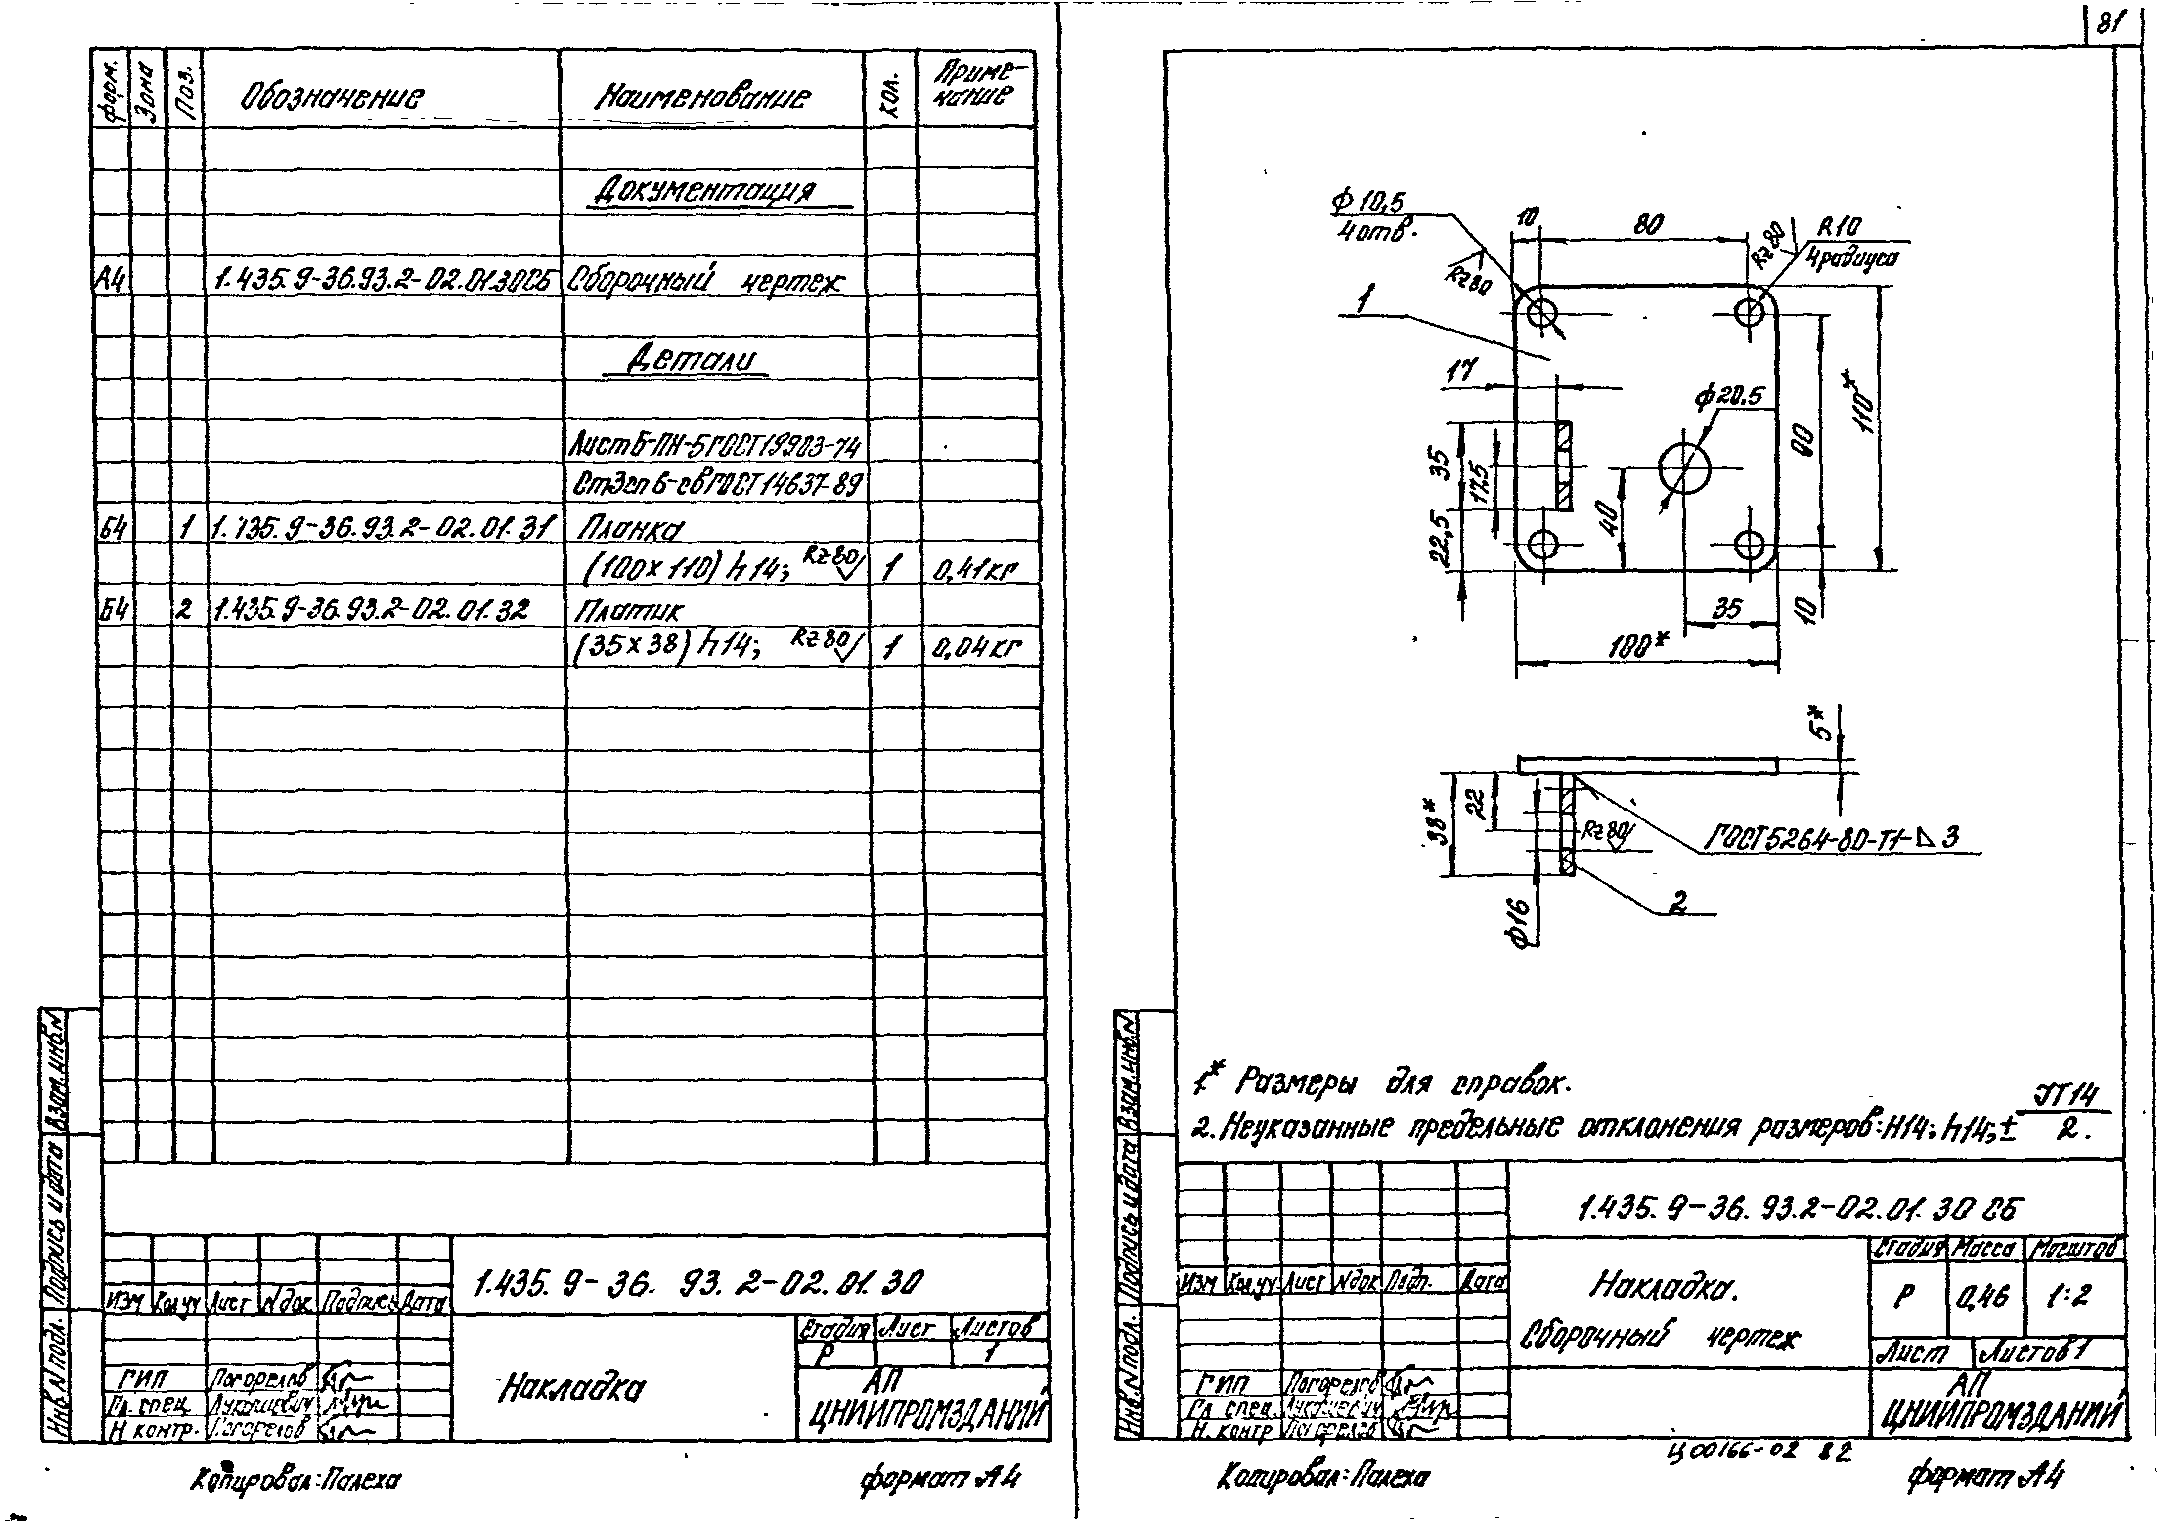 81
форм.
Зона
Поз.
Обозначение
Наименование
Кол.
Приме-
чание
Документация
А4 1.435.9-36.93.2-02.01.30СБ Сборочный чертеж
Детали
Лист Б-ПН-5 ГОСТ 19903-74
Ст3сп6-св ГОСТ 14637-89
Б4 1 1.735.9-36.93.2-02.01.31 Планка
(100х110) h14; Rz80 1 0,41кг
Б4 2 1.435.9-36.93.2-02.01.32 Платик
(35х38) h14; Rz80 1 0,04кг
Взам. инв. N
Подпись и дата
Инв. N подл.
1.435.9-36.93.2-02.01.30
Изм Кол.уч Лист N док Подпись Дата
Накладка
Стадия Лист Листов
Р 1
АП
ЦНИИПРОМЗДАНИЙ
ГИП Погорелов
Гл. спец. Лукашевич
Н контр. Погорелов
Копировал: Палеха
формат А4
ф 10,5
4 отв.
Rz80
10
80
Rz80
R10
4 радиуса
1
17
ф20.5
35
17,5
22,5
40
90
110*
10
35
100*
5*
38*
22
Rz80
ф16
ГОСТ 5264-80-Т1-⊿3
2
1* Размеры для справок.
2. Неуказанные предельные отклонения размеров: Н14; h14; ± IT14
2.
Взам. инв. N
Подпись и дата
Инв. N подл.
1.435.9-36.93.2-02.01.30 СБ
Изм Кол.уч Лист N док Подп. Дата
Накладка.
Сборочный чертеж
Стадия Масса Масштаб
Р 0,46 1:2
Лист Листов 1
АП
ЦНИИПРОМЗДАНИЙ
ГИП Погорелов
Гл спец. Лукашевич
Н. контр Погорелов
Ц00166-02 82
Копировал: Палеха
формат А4